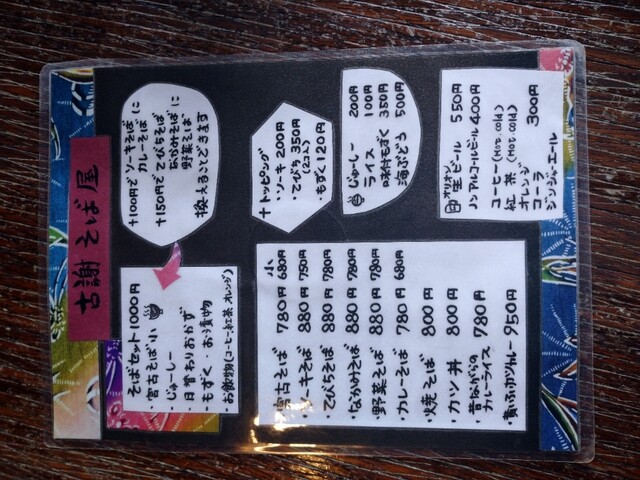 古謝そば屋
そばセット 1000円
・宮古そば小
・じゅーしー
・日替わりおかず
・もずく・お漬物
・お飲物(コーヒー,紅茶,オレンジ)
+100円で ソーキそば
カレーそば に
+150円で てびちそば
なかみそば に
野菜そば
換えることできます
小
宮古そば 780円 680円
ソーキそば 880円 750円
てびちそば 880円 780円
なかみそば 880円 780円
野菜そば 880円 780円
・カレーそば 780円 680円
・焼そば 800円
・カツ丼 800円
・昔ながらの
カレーライス 780円
950円
+トッピング
・ソーキ 200円
・てびち 350円
(2コ)
・もずく 120円
じゅーしー 200円
ライス 100円
味付もずく 350円
海ぶどう 500円
オリオン
生ビール 550円
ノンアルコールビール 400円
コーヒー (Hot, cold)
紅茶 (Hot, cold)
オレンジ
コーラ 300円
ジンジャーエール